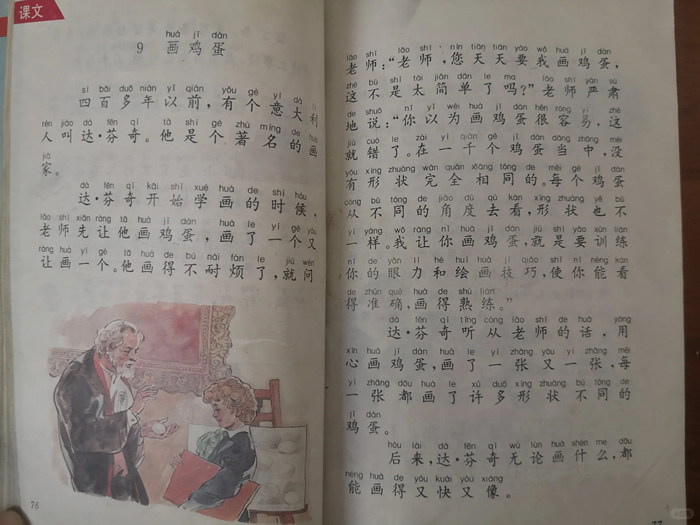 课文
huà jī dàn
9 画鸡蛋
sì bǎi duō nián yǐ qián yǒu gè yì dà lì
四百多年以前，有个意大利
rén jiào dá fēn qí tā shì gè zhù míng de huà
人叫达·芬奇。他是个著名的画
jiā
家。
dá fēn qí kāi shǐ xué huà de shí hou
达·芬奇开始学画的时候，
lǎo shī xiān ràng tā huà jī dàn huà le yí gè yòu
老师先让他画鸡蛋，画了一个又
ràng huà yí gè tā huà de bú nài fán le jiù wèn
让画一个。他画得不耐烦了，就问
76
lǎo shī lǎo shī nín tiān tiān yào wǒ huà jī dàn
老师：“老师，您天天要我画鸡蛋，
zhè bú shì tài jiǎn dān le ma lǎo shī yán sù
这不是太简单了吗？”老师严肃
de shuō nǐ yǐ wéi huà jī dàn hěn róng yì zhè
地说：“你以为画鸡蛋很容易，这
jiù cuò le zài yì qiān gè jī dàn dāng zhōng méi
就错了。在一千个鸡蛋当中，没
yǒu xíng zhuàng wán quán xiāng tóng de měi gè jī dàn
有形状完全相同的。每个鸡蛋
cóng bù tóng de jiǎo dù qù kàn xíng zhuàng yě bù
从不同的角度去看，形状也不
yí yàng wǒ ràng nǐ huà jī dàn jiù shì yào xùn liàn
一样。我让你画鸡蛋，就是要训练
nǐ de yǎn lì hé huì huà jì qiǎo shǐ nǐ néng kàn
你的眼力和绘画技巧，使你能看
de zhǔn què huà de shú liàn
得准确，画得熟练。”
dá fēn qí tīng cóng lǎo shī de huà yòng
达·芬奇听从老师的话，用
xīn huà jī dàn huà le yì zhāng yòu yì zhāng měi
心画鸡蛋，画了一张又一张，每
yì zhāng dōu huà le xǔ duō xíng zhuàng bù tóng de
一张都画了许多形状不同的
jī dàn
鸡蛋。
hòu lái dá fēn qí wú lùn huà shén me dōu
后来，达·芬奇无论画什么，都
néng huà de yòu kuài yòu xiàng
能画得又快又像。